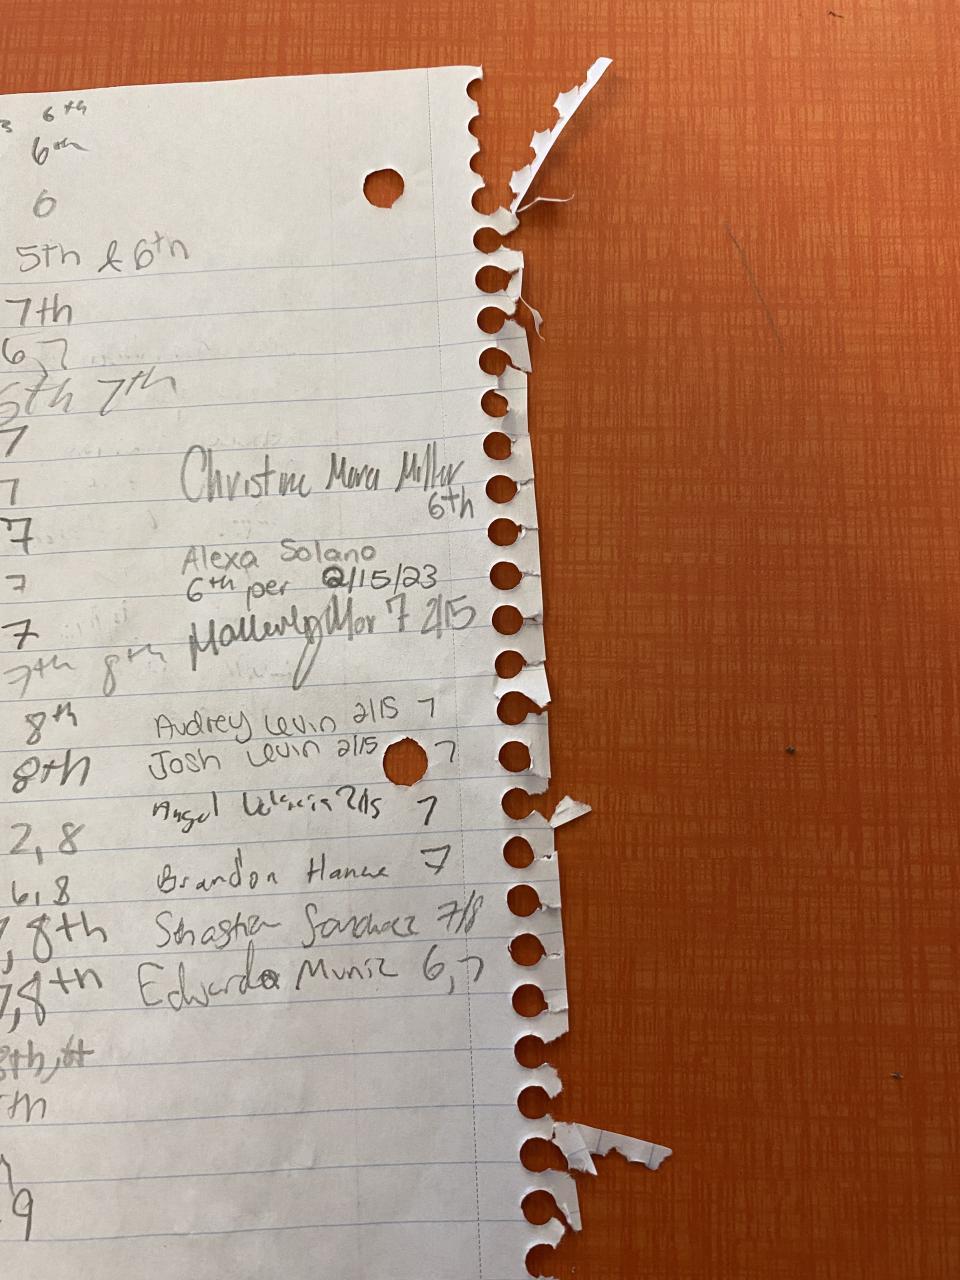 3 6th
6th
6
5th & 6th
7th
6,7
6th 7th
7
7 Christine Mora Miller
6th
7
Alexa Solano
7 6th per 2/15/23
7 Mor 7 2/15
7th 8th
8th Audrey Levin 2/15 7
8th Josh Levin 2/15 7
Angel 2/15 7
2, 8
Brandon 7
6, 8
, 8th Sebastian Sanchez 7/8
7,8th Edwardo Muniz 6,7
8th,
th
9